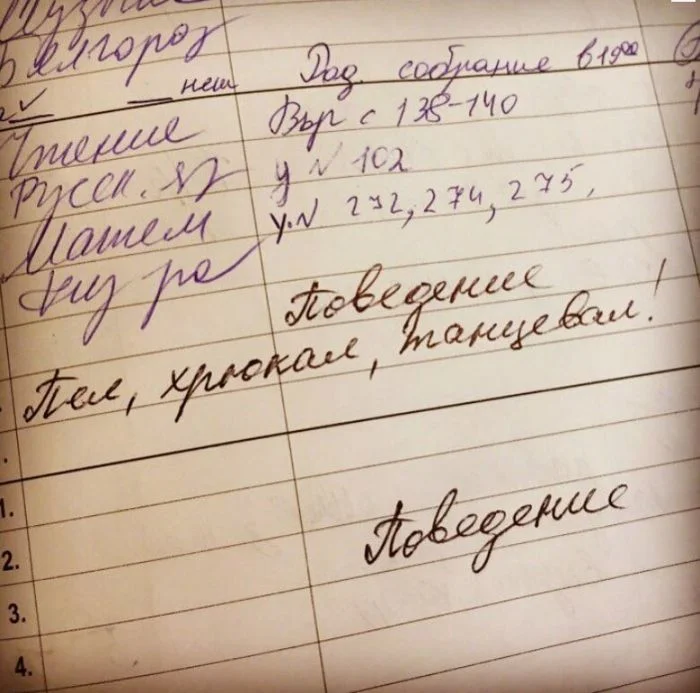 Музык
Белгород
нет Род собрание в 19⁰⁰
Чтение Выр с 138-140
Русск. яз у № 102
Матем у.№ 272, 274, 275,
Физ ра
Поведение
Пел, хрюкал, танцевал!
1.
2. Поведение
3.
4.